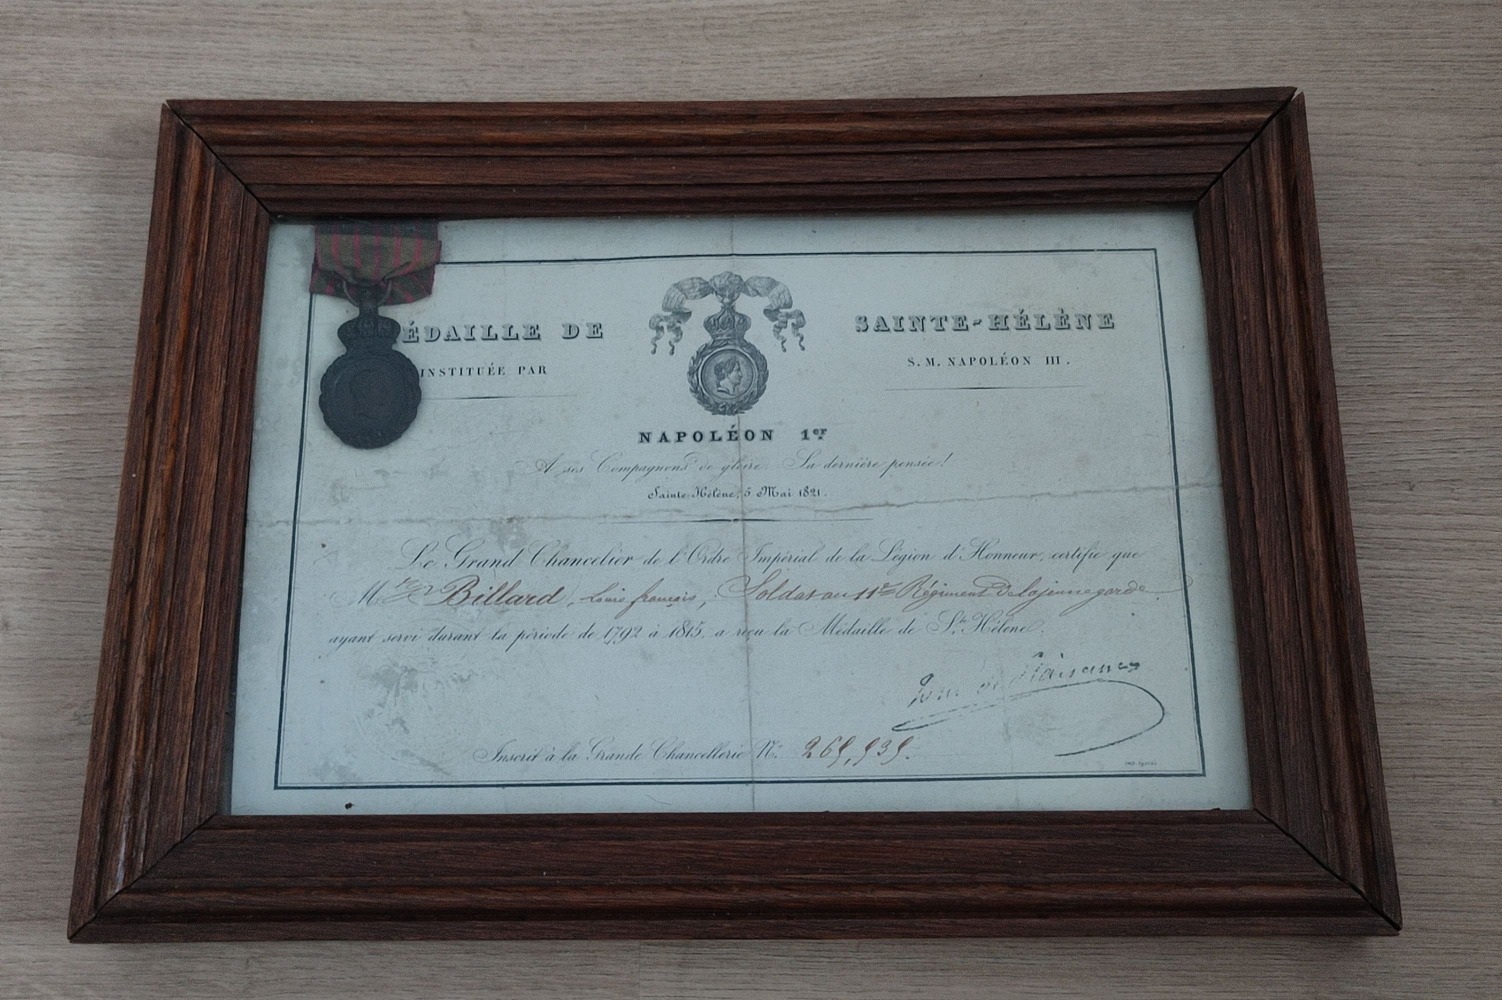 ÉDAILLE DE SAINTE-HÉLÈNE
INSTITUÉE PAR S. M. NAPOLÉON III.
NAPOLÉON 1er
A ses Compagnons de gloire. Sa dernière pensée!
Sainte Hélène, 5 Mai 1821.
Le Grand Chancelier de l'Ordre Impérial de la Légion d'Honneur, certifie que
M Billard, Louis françois, Soldat au 11e Régiment De la jeune garde
ayant servi durant la période de 1792 à 1815, a reçu la Médaille de Ste Hélène.
Inscrit à la Grande Chancellerie No.